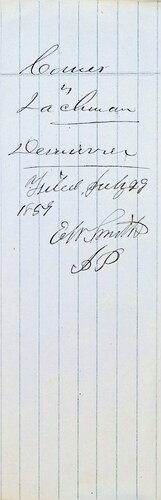 Comer
vs
Lachman
Demurrer
Filed July 29
1859
E W Smith
JP